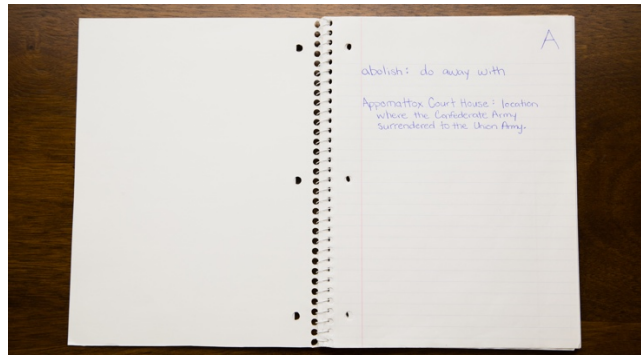 A
abolish: do away with
Appomattox Court House: location
where the Confederate Army
surrendered to the Union Army.